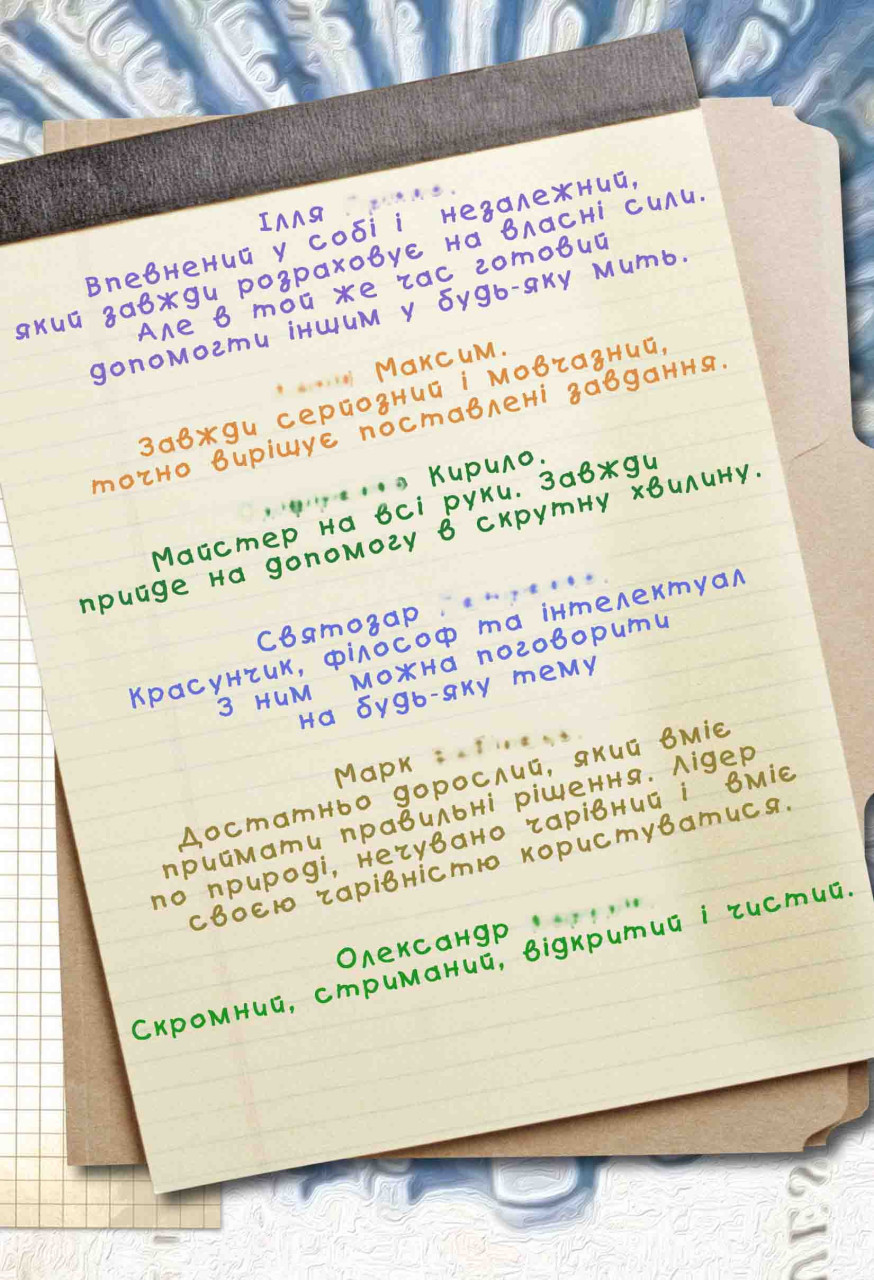 Ілля
Впевнений у собі і незалежний,
який завжди розраховує на власні сили.
Але в той же час готовий
допомогти іншим у будь-яку мить.
Максим.
Завжди серйозний і мовчазний,
точно вирішує поставлені завдання.
Кирило.
Майстер на всі руки. Завжди
прийде на допомогу в скрутну хвилину.
Святозар
Красунчик, філософ та інтелектуал
З ним можна поговорити
на будь-яку тему
Марк
Достатньо дорослий, який вміє
приймати правильні рішення. Лідер
по природі, нечувано чарівний і вміє
своєю чарівністю користуватися.
Олександр
Скромний, стриманий, відкритий і чистий.